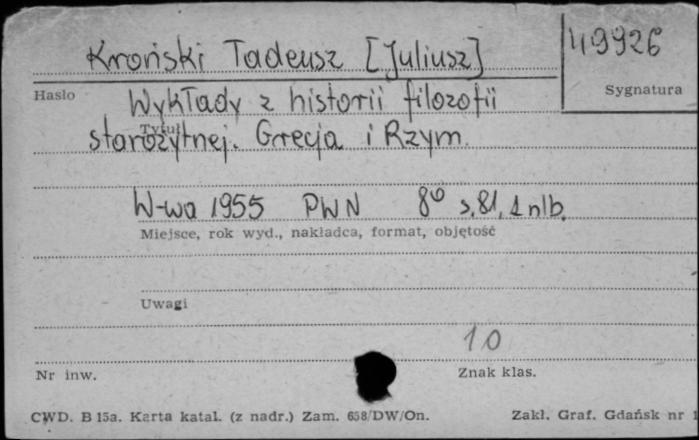 Kroński Tadeusz [Juliusz]
49926
Hasło
Sygnatura
Wykłady z historii filozofii
Tytuł
starożytnej. Grecja i Rzym.
W-wa 1955 PWN 8° s. 81, 1 nlb.
Miejsce, rok wyd., nakładca, format, objętość
Uwagi
10
Nr inw.
Znak klas.
CWD. B 15a. Karta katal. (z nadr.) Zam. 658/DW/On.
Zakł. Graf. Gdańsk nr 1